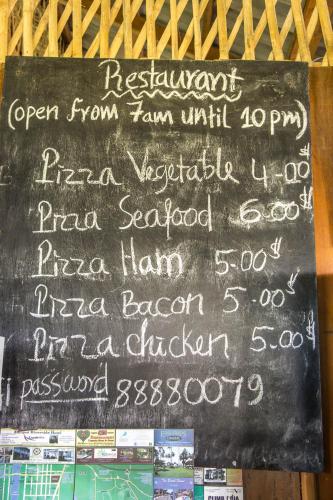 Restaurant
(open from 7am until 10pm)
Pizza Vegetable 4.00$
Pizza Seafood 6.00$
Pizza Ham 5.00$
Pizza Bacon 5.00$
Pizza chicken 5.00$
password 88880079